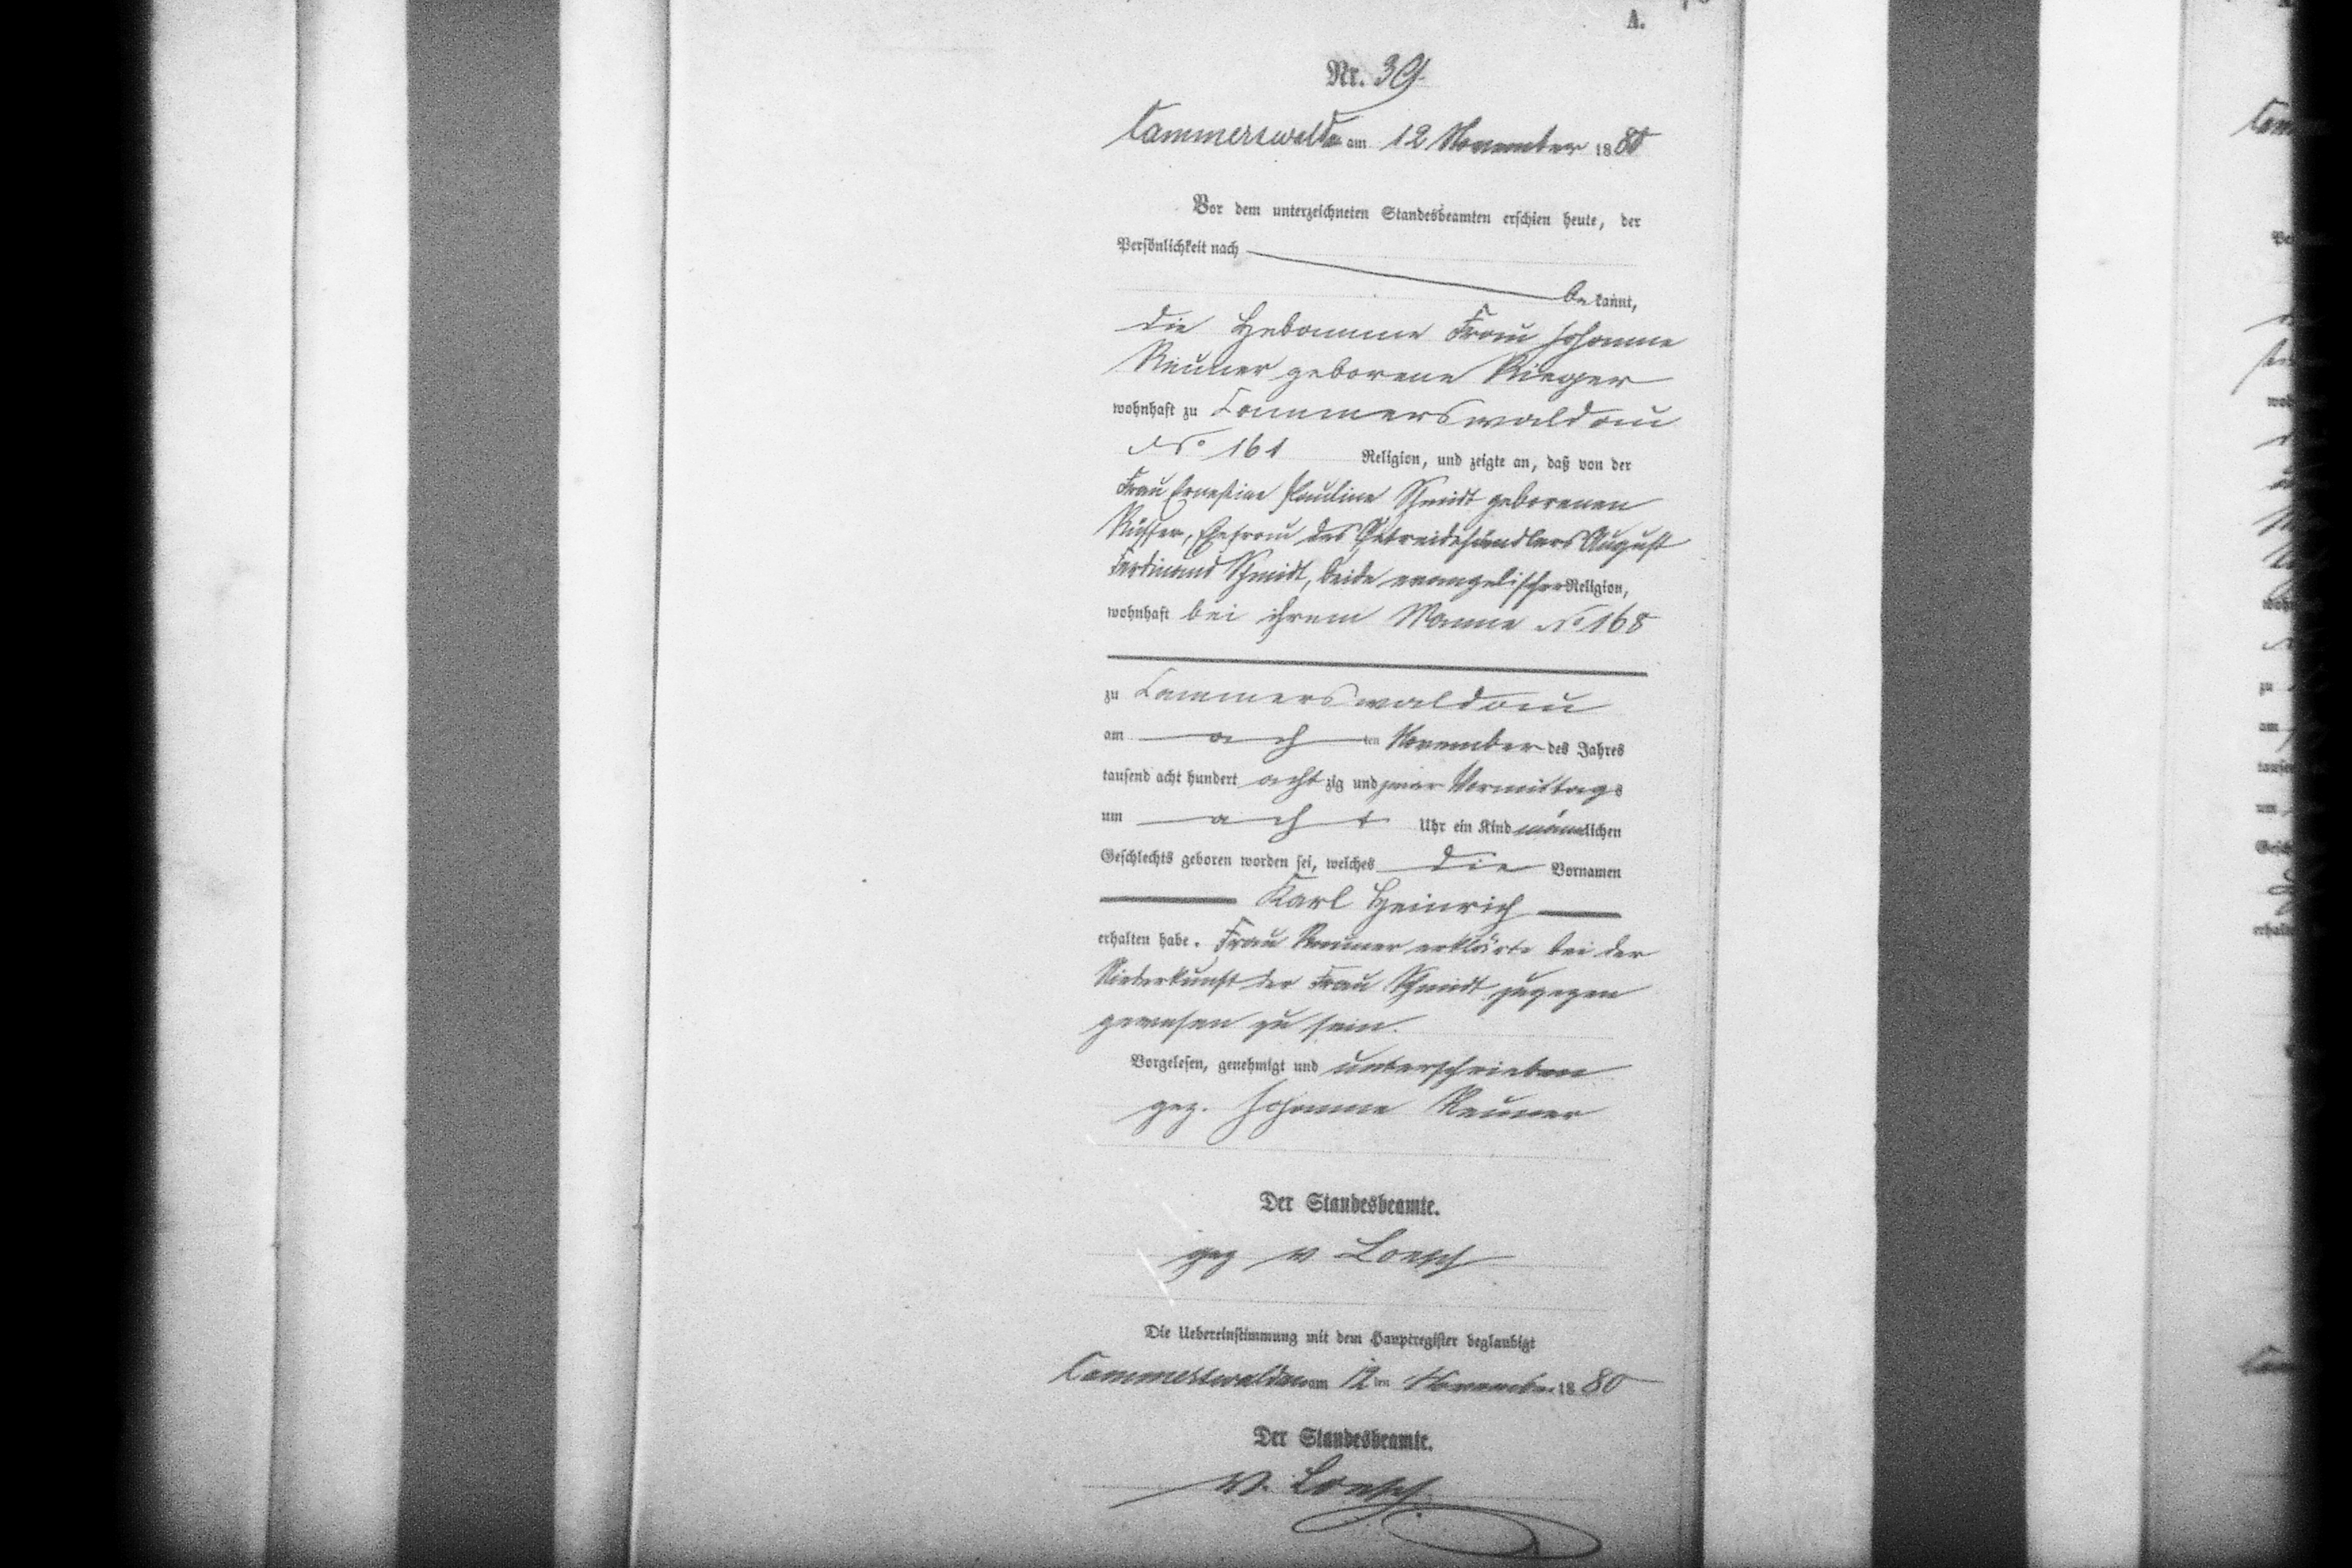 A.
Nr. 39.
Cammerswaldau am 12 November 1880
Vor dem unterzeichneten Standesbeamten erschien heute, der
Persönlichkeit nach
be kannt,
die Hebamme Frau Johanne
Reuner geborene Rieger
wohnhaft zu Cammerswaldau
No 161 Religion, und zeigte an, daß von der
Frau Ernestine Pauline Schmidt geborenen
Rüffer, Ehefrau des Getreidehändlers August
Ferdinand Schmidt, beide evangelischer Religion,
wohnhaft bei ihrem Manne No 168
zu Cammerswaldau
am ach ten November des Jahres
tausend acht hundert acht zig und zwar Vormittags
um acht Uhr ein Kind männlichen
Geschlechts geboren worden sei, welches die Vornamen
Karl Heinrich
erhalten habe. Frau Reuner erklärte bei der
Niederkunft der Frau Schmidt zugegen
gewesen zu sein.
Vorgelesen, genehmigt und unterschrieben
gez. Johanne Reuner
Der Standesbeamte.
gez v Loesch
Die Uebereinstimmung mit dem Hauptregister beglaubigt
Cammerswaldau am 12 ten November 1880
Der Standesbeamte.
v. Loesch